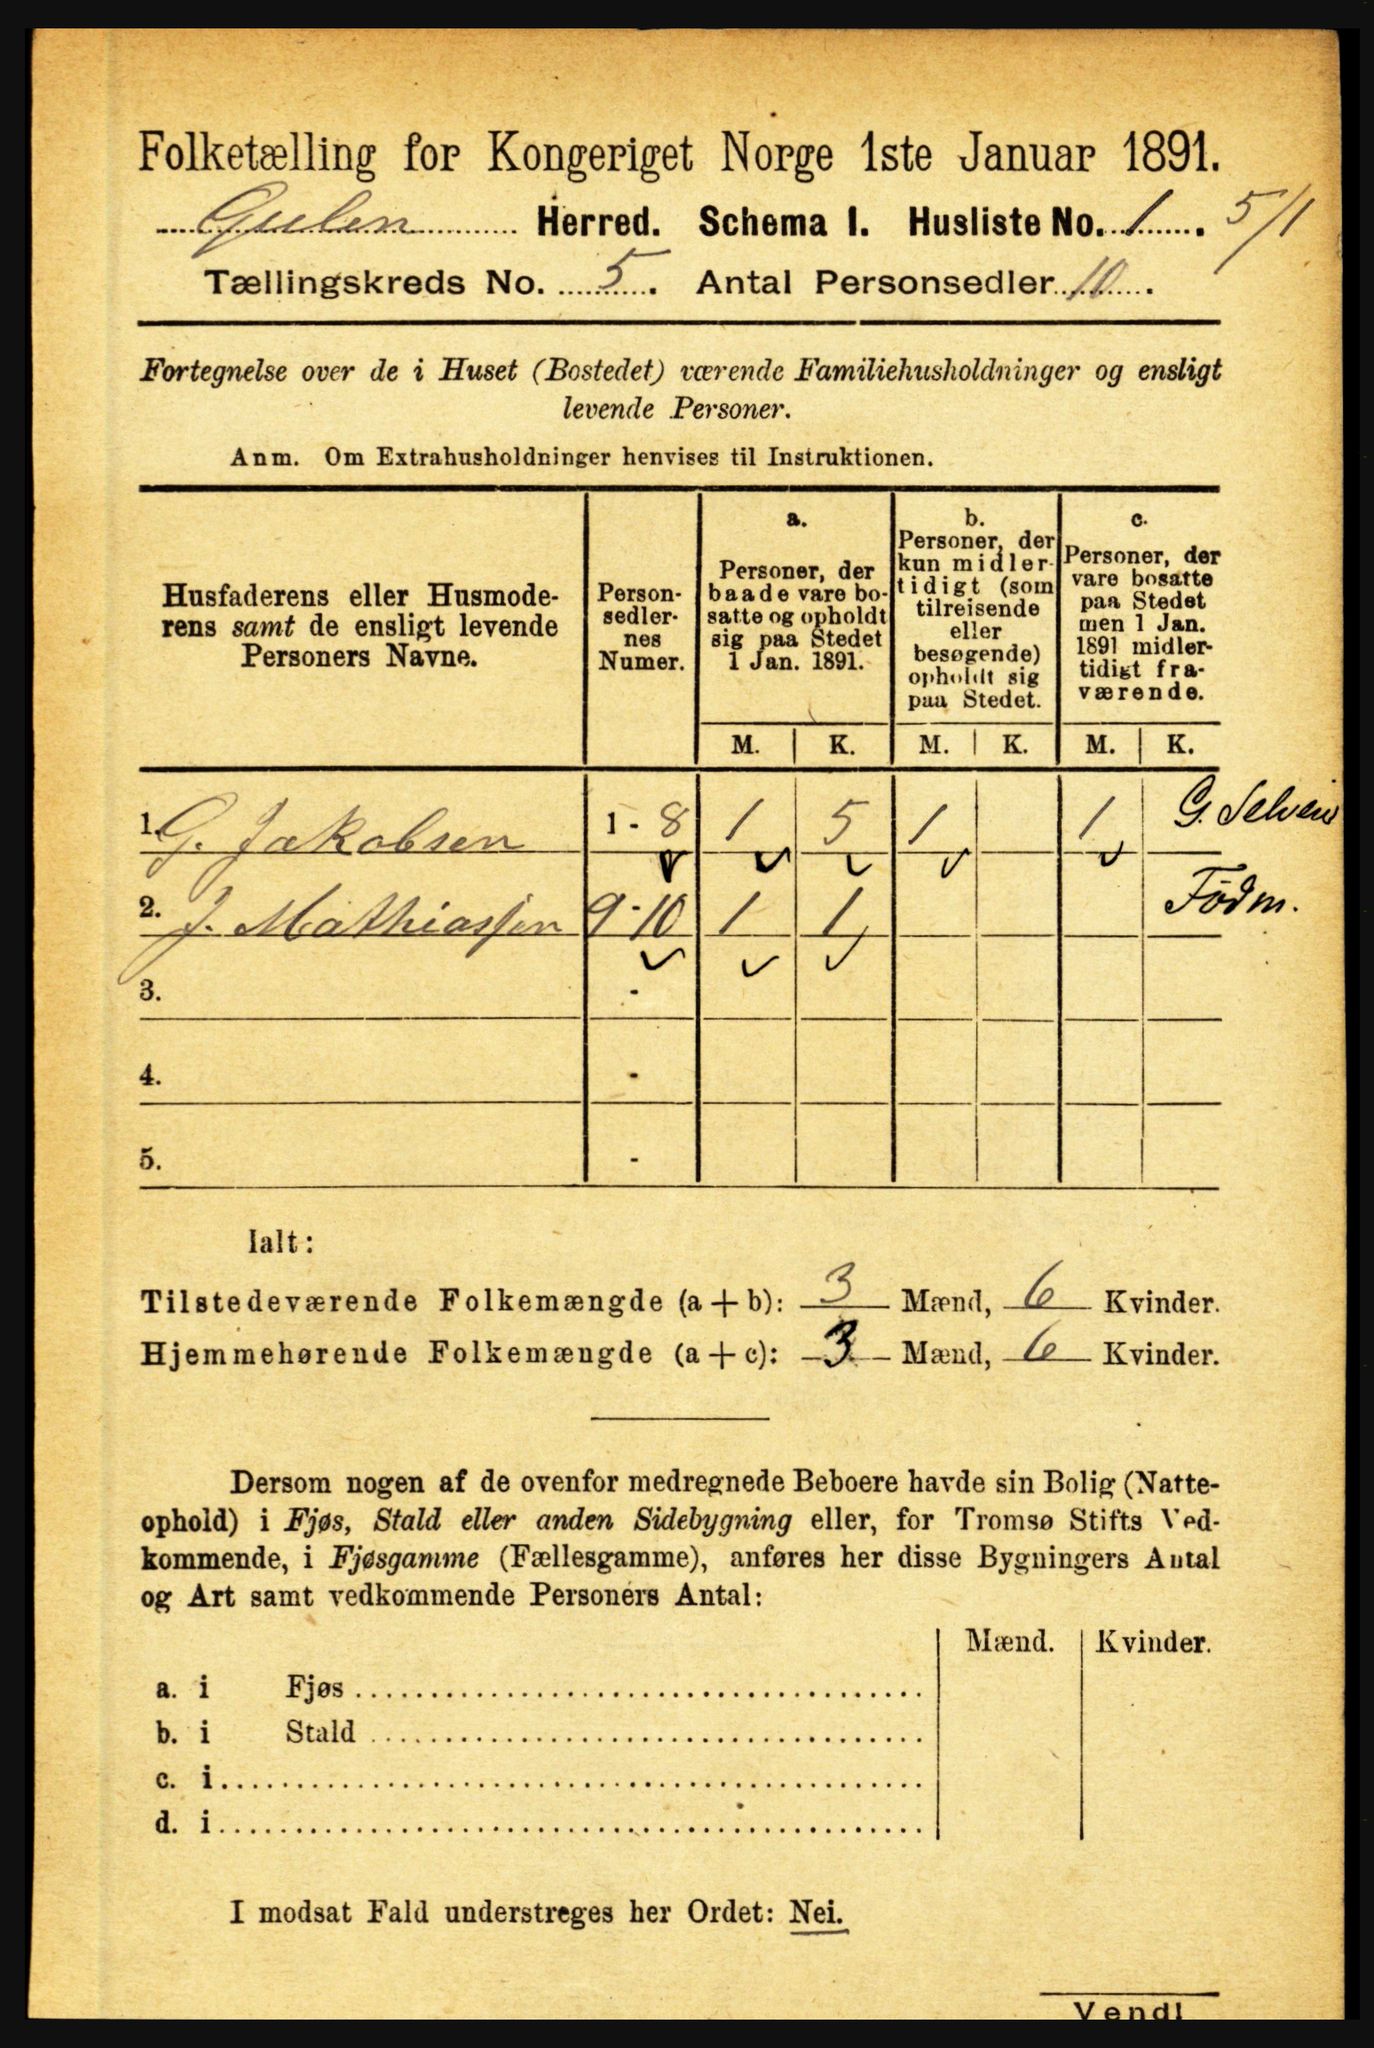 Folketælling for Kongeriget Norge 1ste Januar 1891.
Gulen Herred. Schema I. Husliste No. 1. 5/1
Tællingskreds No. 5. Antal Personsedler 10.
Fortegnelse over de i Huset (Bostedet) værende Familiehusholdninger og ensligt
levende Personer.
Anm. Om Extrahusholdninger henvises til Instruktionen.
Husfaderens eller Husmode-
rens samt de ensligt levende
Personers Navne.
Person-
sedler-
nes
Numer.
a.
Personer, der
baade vare bo-
satte og opholdt
sig paa Stedet
1 Jan. 1891.
b.
Personer, der
kun midler-
tidigt (som
tilreisende
eller
besøgende)
opholdt sig
paa Stedet.
c.
Personer, der
vare bosatte
paa Stedet
men 1 Jan.
1891 midler-
tidigt fra-
værende.
M. K. M. K. M. K.
1. G. Jakobsen 1-8 1 5 1 1 G. Selveier
2. J. Mathiassen 9-10 1 1 Fødm.
3. -
4. -
5. -
Ialt:
Tilstedeværende Folkemængde (a + b): 3 Mænd, 6 Kvinder.
Hjemmehørende Folkemængde (a + c): 3 Mænd, 6 Kvinder.
Dersom nogen af de ovenfor medregnede Beboere havde sin Bolig (Natte-
ophold) i Fjøs, Stald eller anden Sidebygning eller, for Tromsø Stifts Ved-
kommende, i Fjøsgamme (Fællesgamme), anføres her disse Bygningers Antal
og Art samt vedkommende Personers Antal:
Mænd. Kvinder.
a. i Fjøs
b. i Stald
c. i
d. i
I modsat Fald understreges her Ordet: Nei.
Vend!